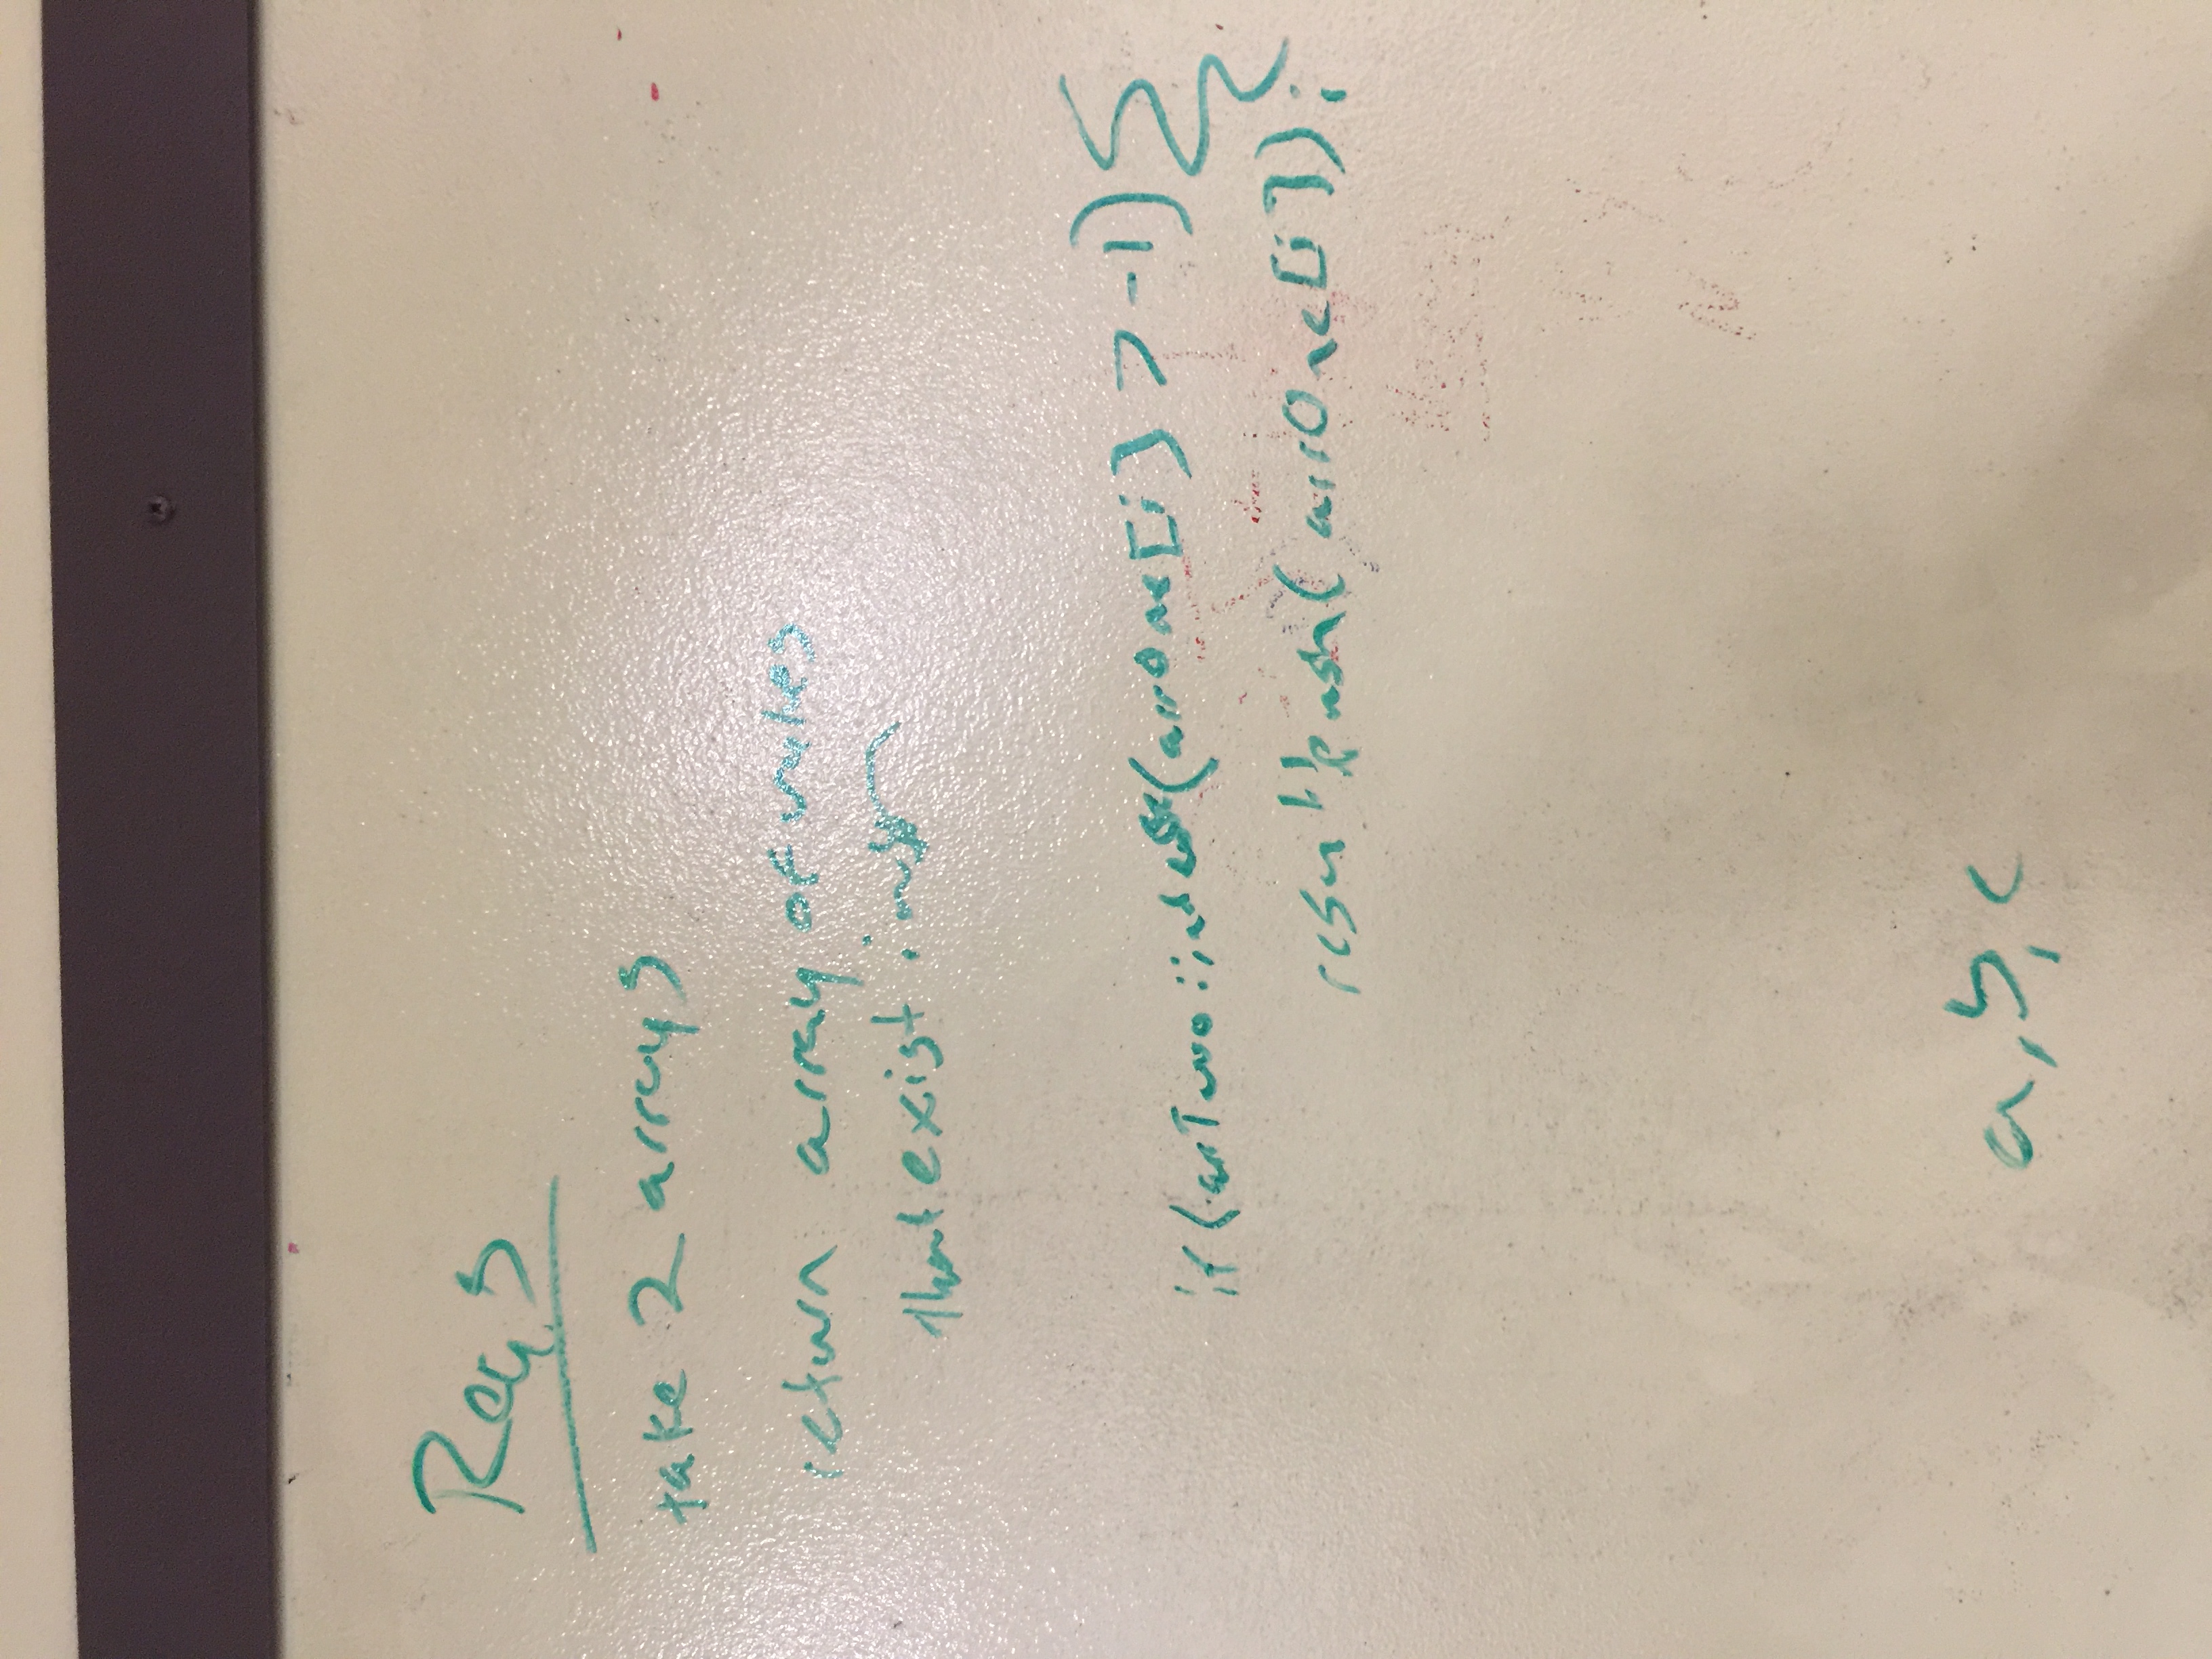 Reqs
take 2 arrays
return array of values
that exist in
if (arrTwo.indexOf(arrOne[i] > -1) {
result.push(arrOne[i]);
a, b, c